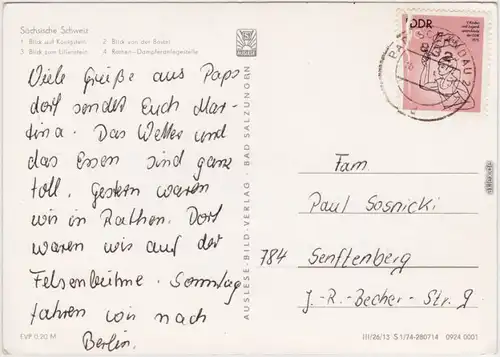 Sächsische Schweiz
1 Blick auf Königstein 2 Blick von der Bastei
3 Blick zum Lilienstein 4 Rathen-Dampferanlegestelle
Viele Grüße aus Paps
dorf sendet Euch Mar-
tina. Das Wetter und
das Essen sind ganz
toll. Gestern waren
wir in Rathen. Dort
waren wir auf der
Felsenbühne. Sonntag
fahren wir nach
Berlin.
EVP 0,20 M
AUSLESE-BILD-VERLAG · BAD SALZUNGEN
DDR
Fam.
Paul Sosnicki
784 Senftenberg
J.-R.-Becher-Str. 9
III/26/13 S 1/74-280714 0924 0001